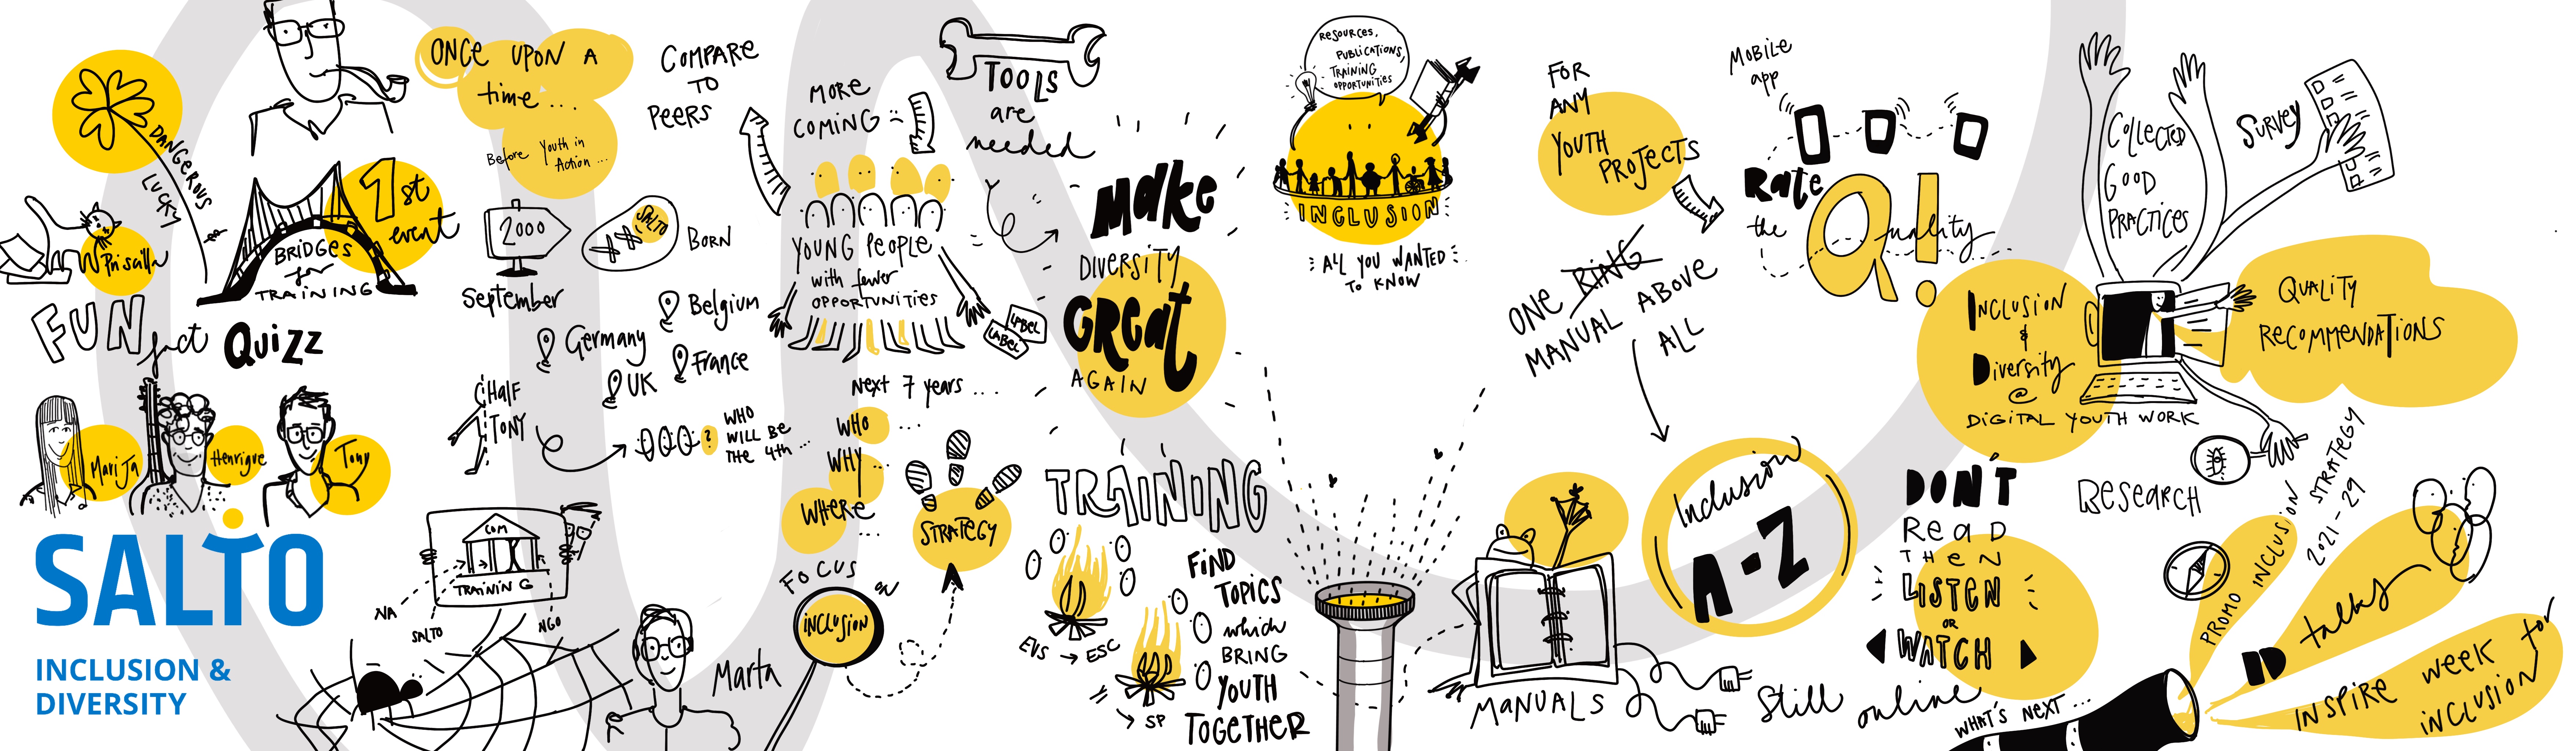 DANGEROUS
LUCKY
Priscilla
FUN fact QUIZZ
Marija
Henrique
Tony
SALTO
INCLUSION &
DIVERSITY
1st
event
BRIDGES
for
TRAINING
ONCE UPON A
time...
Before Youth in
Action ...
2000
September
SALTO
BORN
Belgium
Germany
France
UK
HALF
TONY
?
WHO
WILL BE
THE 4th ...
COM
TRAINING
NA
SALTO
NGO
Marta
COMPARE
TO
PEERS
MORE
COMING
YOUNG PEOPLE
with fewer
OPPORTUNITIES
LABEL
LABEL
Next 7 years ....
WHO ...
WHY ...
WHERE ....
FOCUS
on
INCLUSION
STRATEGY
TOOLS
are
needed
Make
DIVERSITY
GREAT
AGAIN
TRAINING
EVS → ESC
→ SP
FIND
TOPICS
which
BRING
YOUTH
TOGETHER
RESOURCES,
PUBLICATIONS,
TRAINING
OPPORTUNITIES
INCLUSION
ALL YOU WANTED
TO KNOW
FOR
ANY
YOUTH
PROJECTS
ONE RING
MANUAL ABOVE
ALL
MANUALS
Inclusion
A-Z
Still online
MOBILE
app
Rate
the Quality
Q!
INCLUSION
&
Diversity
@
DIGITAL YOUTH WORK
COLLECTED
GOOD
PRACTICES
SURVEY
QUALITY
RECOMMENDATIONS
RESEARCH
DON'T
READ
THEN
LISTEN
OR
WATCH
WHAT'S NEXT ...
PROMO INCLUSION STRATEGY
2021-29
ID talks
INSPIRE week for
INCLUSION